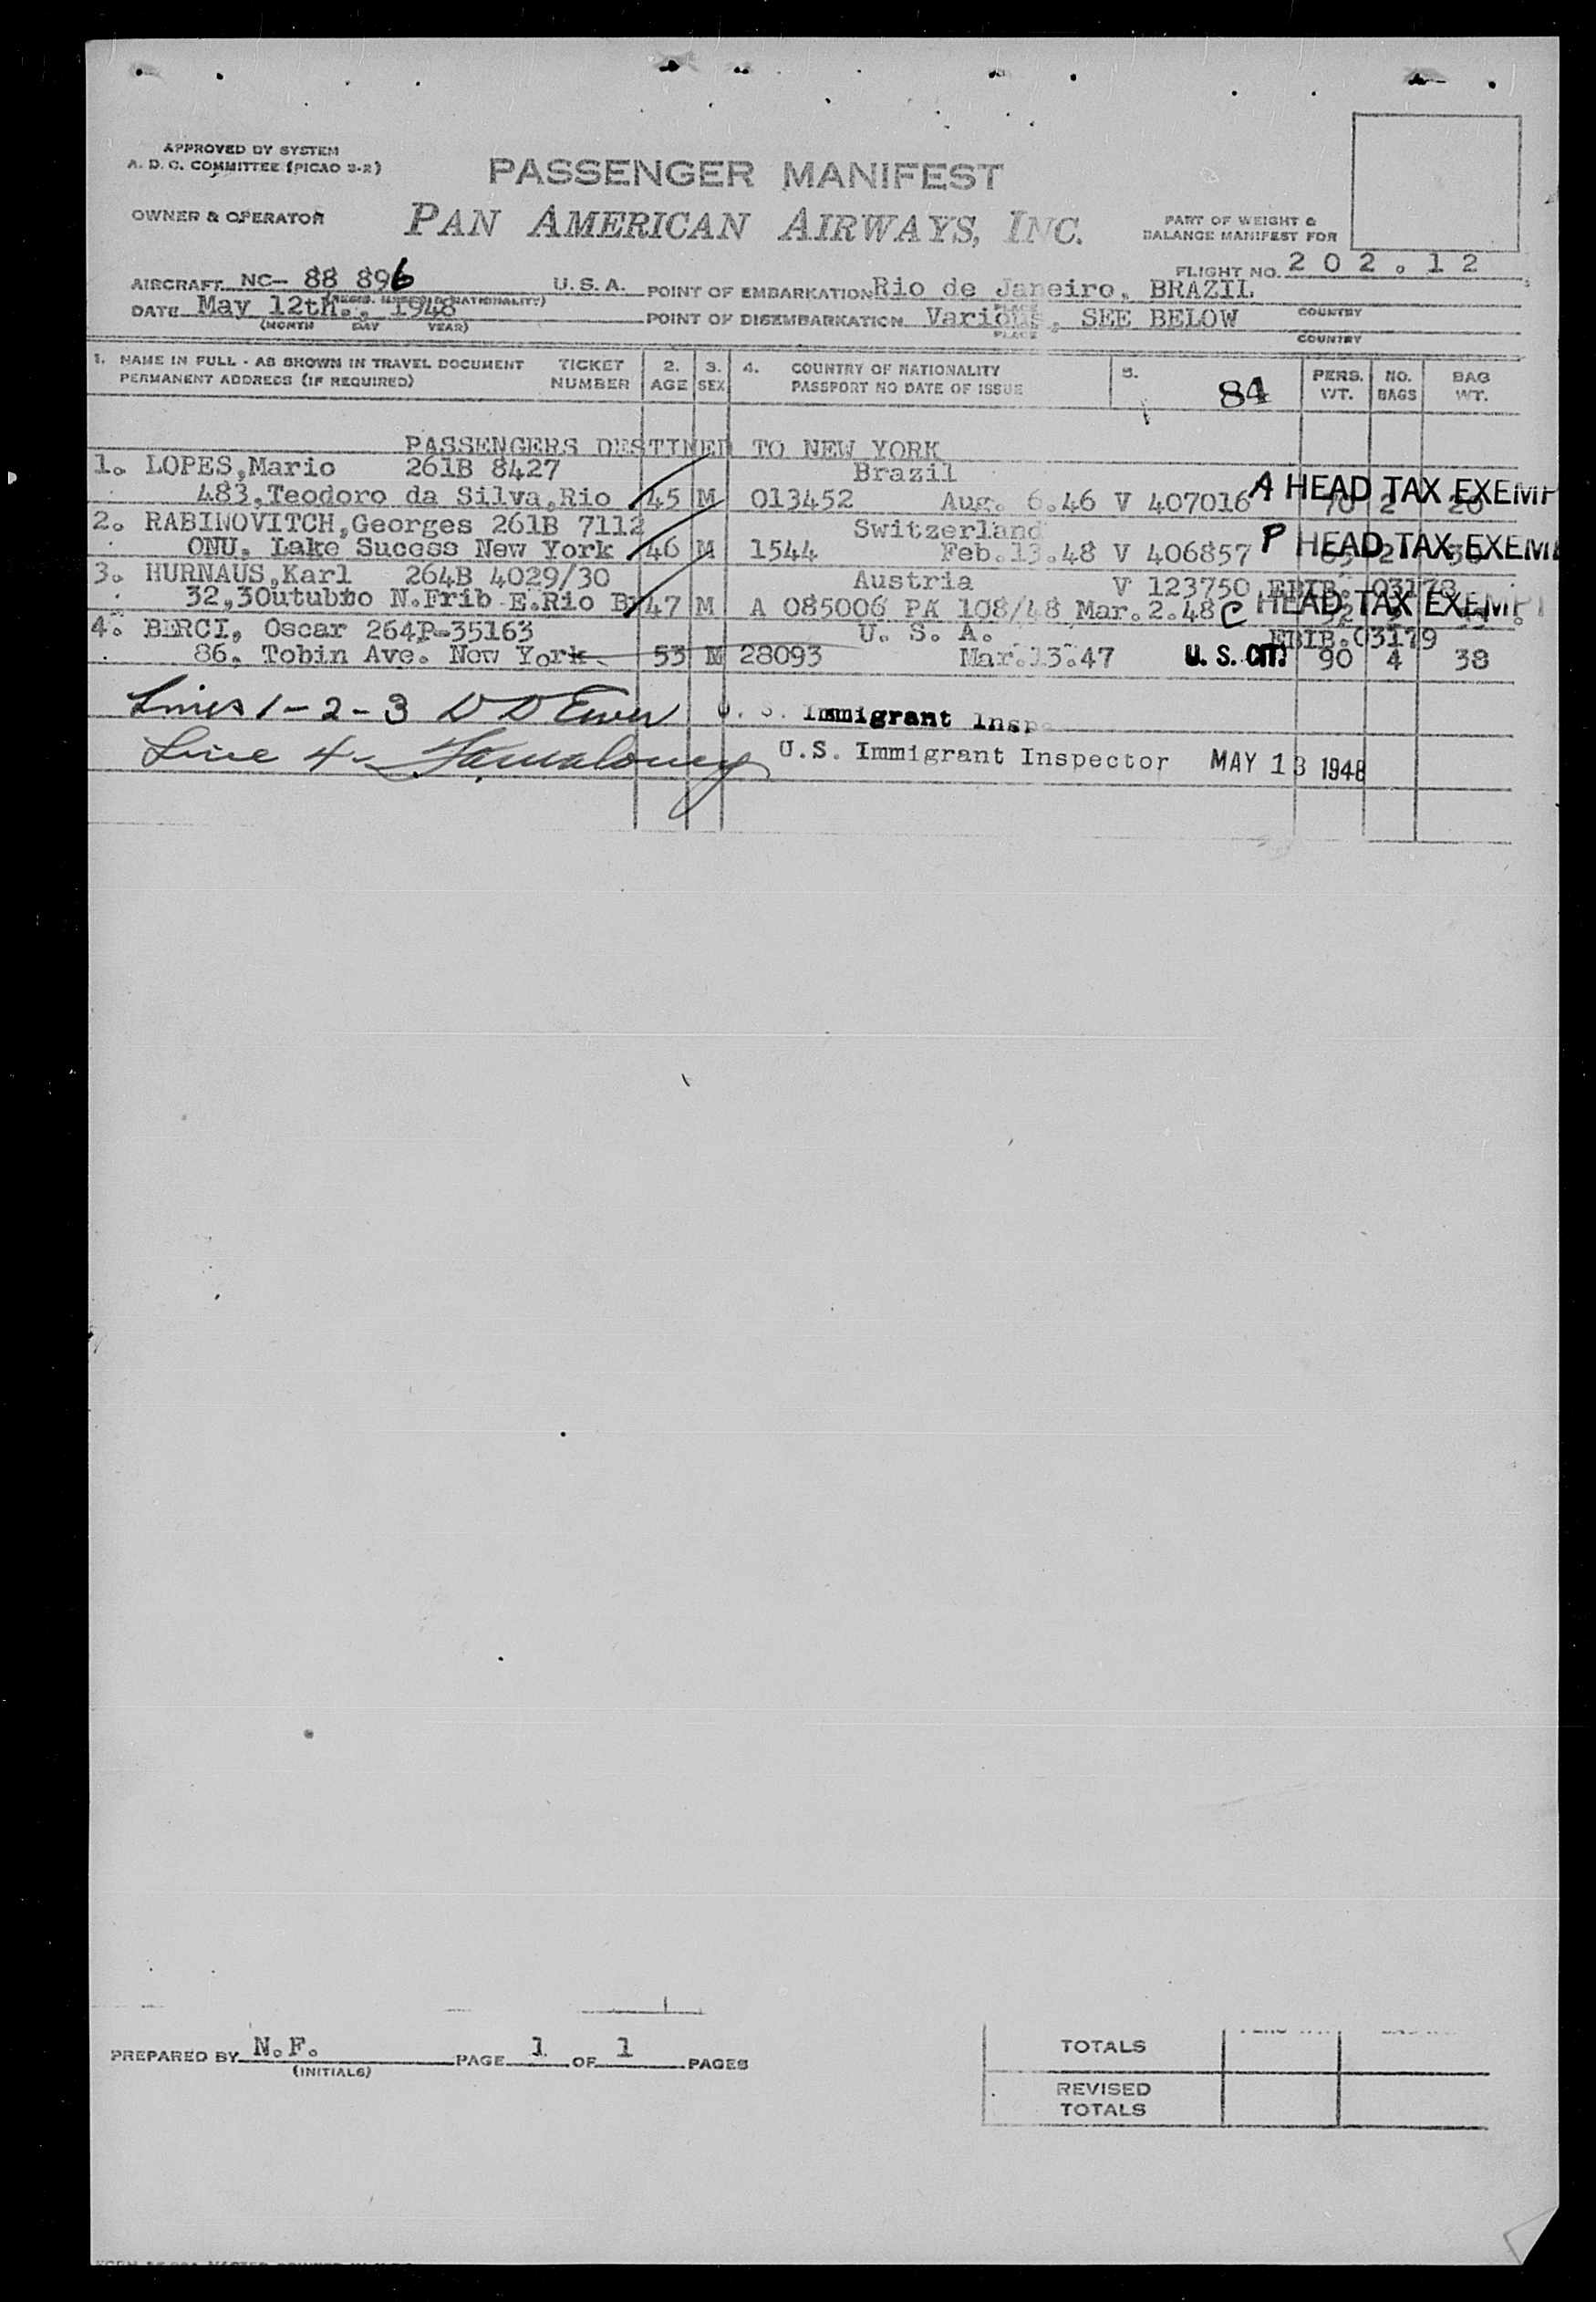 APPROVED BY SYSTEM
A. D. C. COMMITTEE (PICAO 3-2)
PASSENGER MANIFEST
OWNER & OPERATOR PAN AMERICAN AIRWAYS, INC.
PART OF WEIGHT &
BALANCE MANIFEST FOR
FLIGHT NO. 202.12
AIRCRAFT NC- 88 896 U.S.A. POINT OF EMBARKATION Rio de Janeiro, BRAZIL
PLACE COUNTRY
DATE May 12th., 1948 POINT OF DISEMBARKATION Various, SEE BELOW
(MONTH DAY YEAR) PLACE COUNTRY
1. NAME IN FULL - AS SHOWN IN TRAVEL DOCUMENT TICKET 2. 3. 4. COUNTRY OF NATIONALITY 5. PERS. NO. BAG
PERMANENT ADDRESS (IF REQUIRED) NUMBER AGE SEX PASSPORT NO DATE OF ISSUE 84 WT. BAGS WT.
PASSENGERS DESTINED TO NEW YORK
1. LOPES,Mario 261B 8427 Brazil
483,Teodoro da Silva,Rio 45 M 013452 Aug. 6.46 V 407016 A HEAD TAX EXEMP 70 2 20
2. RABINOVITCH,Georges 261B 7112 Switzerland
ONU. Lake Sucess New York 46 M 1544 Feb.13.48 V 406857 P HEAD TAX EXEM 2
3. HURNAUS,Karl 264B 4029/30 Austria V 123750 EBIB. 03178
32,3Outubro N.Frib E.Rio B 47 M A 085006 PA 108/48 Mar.2.48 C HEAD TAX EXEMPT
4. BERCI, Oscar 264P-35163 U. S. A. EBIB.03179
86. Tobin Ave. New York. 53 M 28093 Mar.13.47 U. S. CIT. 90 4 38
Lines 1-2-3 D D U. S. Immigrant Insp
Line 4 U.S. Immigrant Inspector MAY 13 1948
PREPARED BY N.F. PAGE 1 OF 1 PAGES
(INITIALS)
TOTALS
REVISED
TOTALS